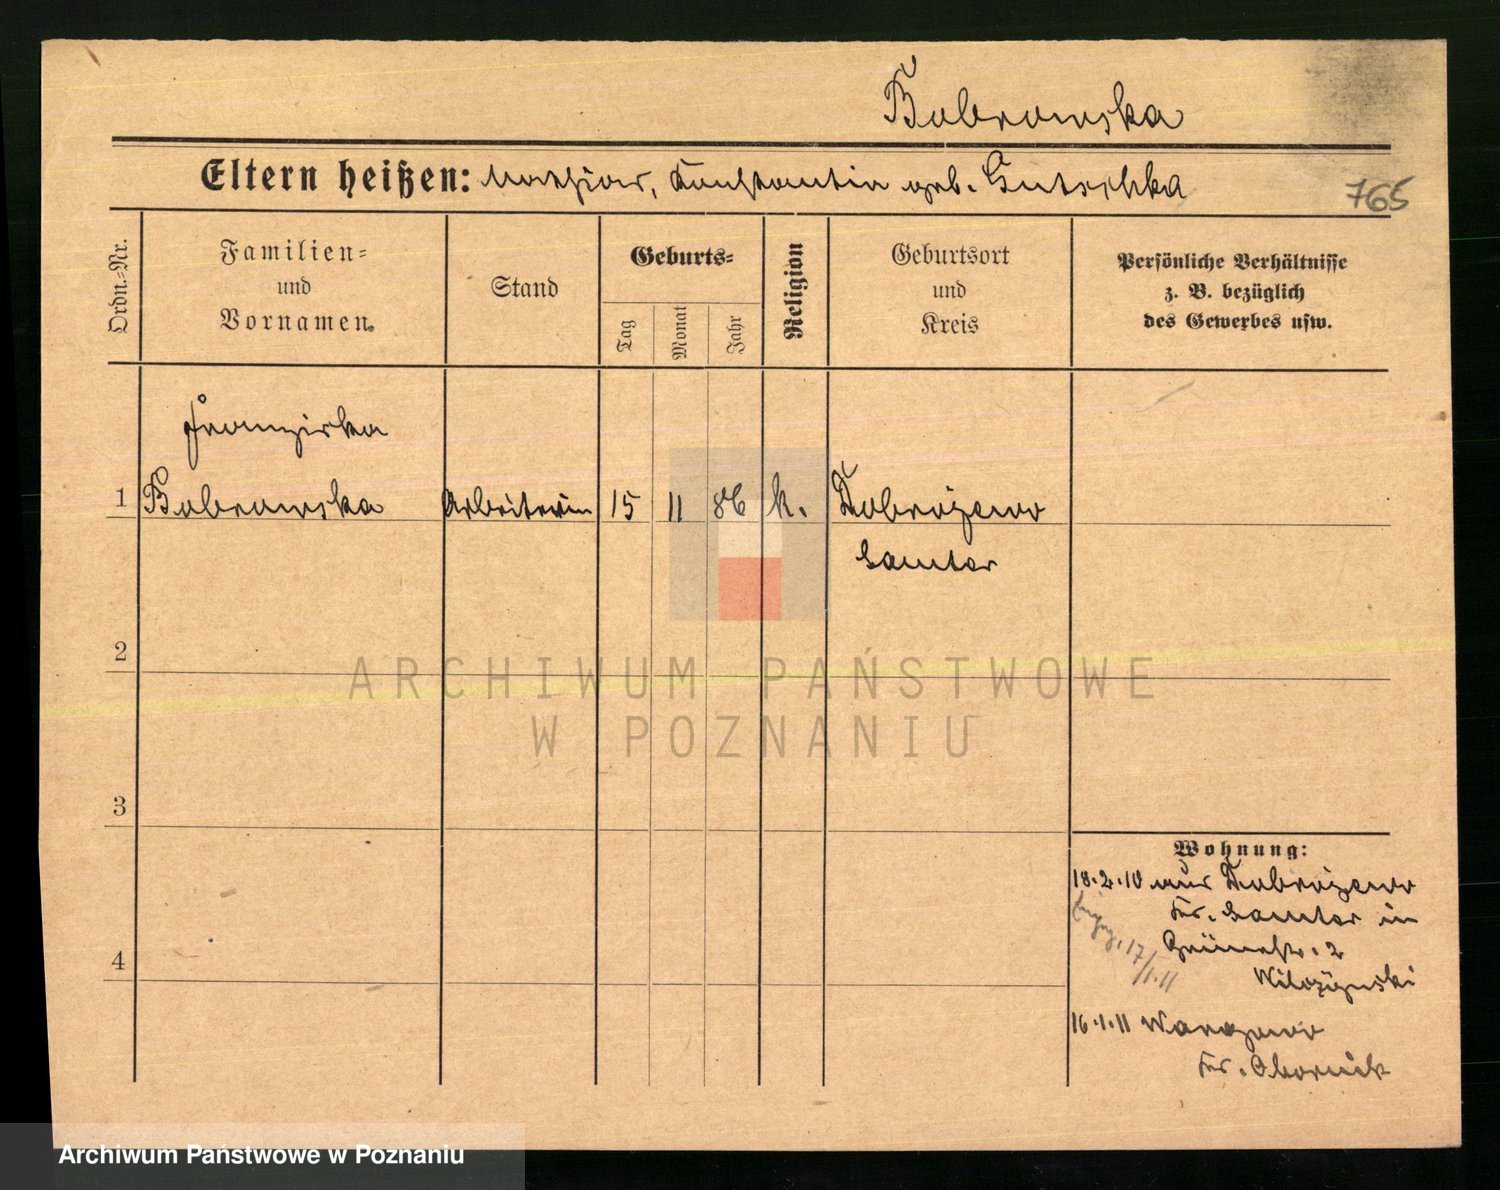 Bobrowska
Eltern heißen: Mathias, Konstantin geb. Gutschka
765
Ordn.-Nr.
Familien-
und
Vornamen.
Stand
Geburts-
Tag
Monat
Jahr
Religion
Geburtsort
und
Kreis
Persönliche Verhältnisse
z. B. bezüglich
des Gewerbes usw.
Franziska
1 Bobrowska Arbeiterin 15 11 86 k. Dobrojewo
Samter
2
ARCHIWUM PAŃSTWOWE
W POZNANIU
3
Wohnung:
18.2.10 aus Dobrojewo
Kr. Samter in
Grünestr. 2
17/1.11
4
16.1.11
Kr. Obornik
Archiwum Państwowe w Poznaniu